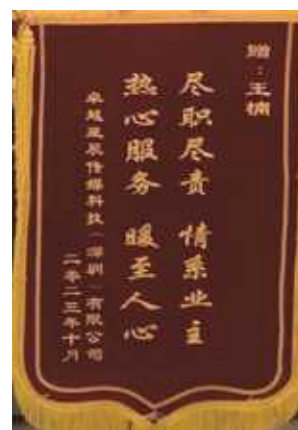 赠：王楠
尽职尽责 情系业主
热心服务 暖至人心
卓越晟辰传媒科技（深圳）有限公司
二零二三年十月